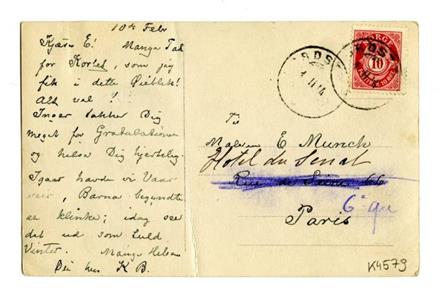 10de Febr
Kjære E! Mange Tak
for Kortet, som jeg
fik i dette Øieblik!
Alt vel!
Inger takker Dig
meget for Gratulationen
og hilser Dig hjerteligt
Igaar havde vi Vaar
veir, Barna begyndte
at klinke; idag ser
det ud som fuld
Vinter. Mange Hilsen
Din hen K B.
NORGE
10
To
Maleren E Munch
Hotel du Senat
Rue de Seine 66
6e qu
Paris
K4579